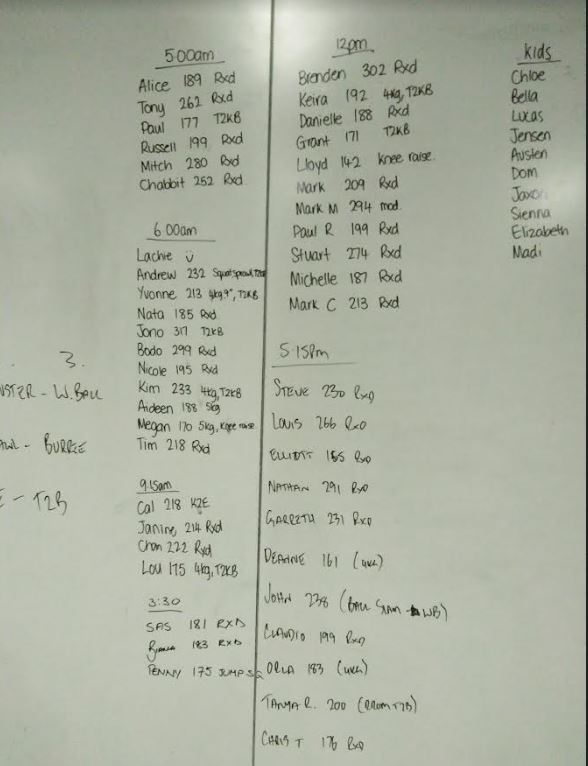 5:00am
Alice 189 Rxd
Tony 262 Rxd
Paul 177 T2KB
Russell 199 Rxd
Mitch 280 Rxd
Chabbit 252 Rxd
6:00am
Lachie
Andrew 232 Squat sprawl, T2KB
Yvonne 213 4kg, 9", T2KB
Nata 185 Rxd
Jono 317 T2KB
Bodo 299 Rxd
Nicole 195 Rxd
Kim 233 4kg, T2KB
Aideen 188 5kg
Megan 170 5kg, Knee raise
Tim 218 Rxd
3.
- W. BALL
- BURPEE
- T2B
9:15am
Cal 218 K2E
Janine 214 Rxd
Chan 222 Rxd
Lou 175 4kg, T2KB
3:30
SAS 181 RXD
183 RXD
PENNY 175 JUMP SQ
12pm
Brenden 302 Rxd
Keira 192 4kg, T2KB
Danielle 188 Rxd
Grant 171 T2KB
Lloyd 142 knee raise.
Mark 209 Rxd
Mark M 294 mod.
Paul R 199 Rxd
Stuart 274 Rxd
Michelle 187 Rxd
Mark C 213 Rxd
5:15pm
STEVE 230 RXD
LOUIS 266 RXD
ELLIOTT 185 RXD
NATHAN 291 RXD
GARRETH 231 RXD
DEAHNE 161 (4KG)
JOHN 238 (BALL SLAM WB)
CLAUDIO 199 RXD
ORLA 183 (4KG)
TANYA R. 200 T2B)
CHRIS T 176 RXD
kids
Chloe
Bella
Lucas
Jensen
Austen
Dom
Jaxon
Sienna
Elizabeth
Madi